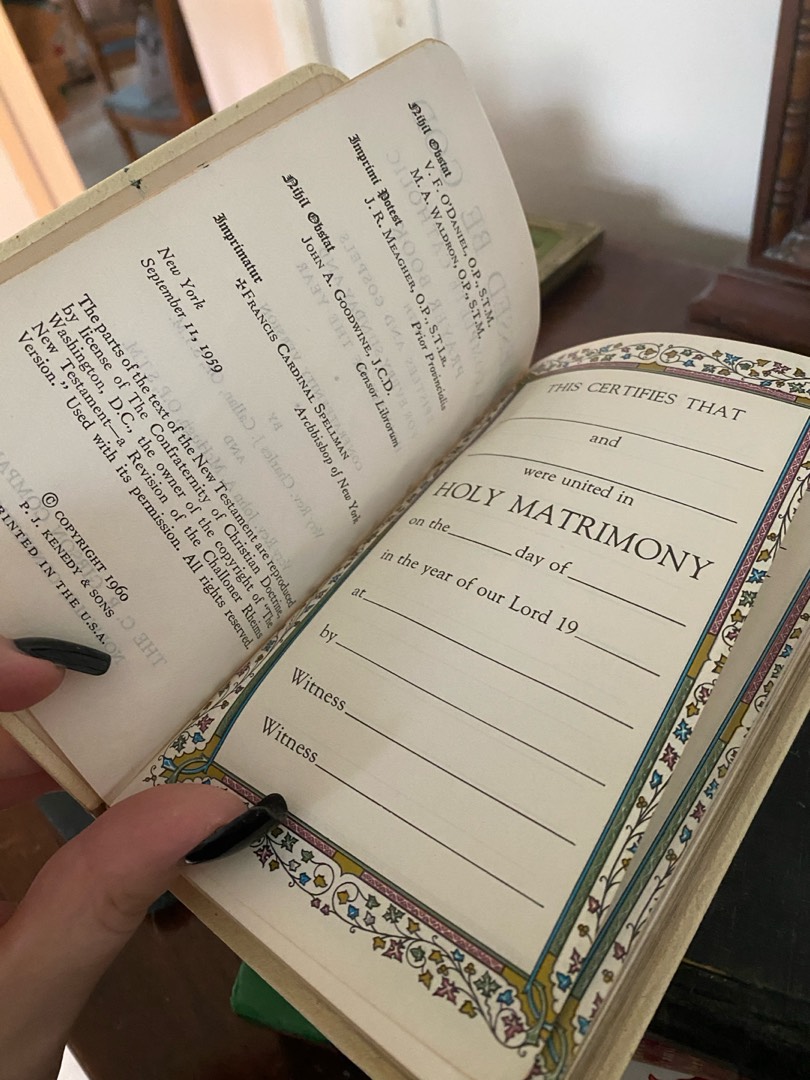 Nihil Obstat
V. F. O'DANIEL, O.P., S.T.M.
M. A. WALDRON, O.P., S.T.M.
Imprimi Potest
J. R. MEAGHER, O.P., S.T.LR.
Prior Provincialis
Nihil Obstat
JOHN A. GOODWINE, J.C.D.
Censor Librorum
Imprimatur
✠FRANCIS CARDINAL SPELLMAN
Archbishop of New York
New York
September 11, 1959
The parts of the text of the New Testament are reproduced
by license of The Confraternity of Christian Doctrine,
Washington, D.C., the owner of the copyright of "The
New Testament—a Revision of the Challoner Rheims
Version." Used with its permission. All rights reserved.
© COPYRIGHT 1960
P. J. KENEDY & SONS
PRINTED IN THE U.S.A.
THIS CERTIFIES THAT
and
were united in
HOLY MATRIMONY
on the day of
in the year of our Lord 19
at
by
Witness
Witness